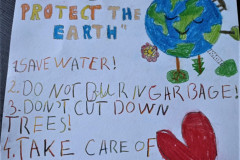 PROTECT THE
EARTH"
1. SAVE WATER!
2. DO NOT BURN GARBAGE!
3. DON'T CUT DOWN
TREES!
4. TAKE CARE OF